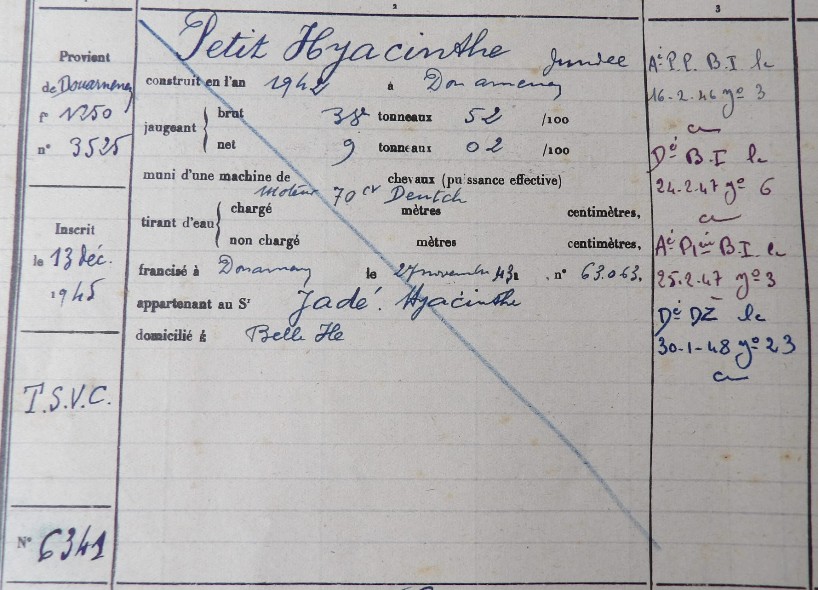 2
3
Provient
de Douarnenez
fº 1250
nº 3525
Inscrit
le 13 déc.
1945
T.S.V.C.
Nº 6341
Petit Hyacinthe Dundee
construit en l'an 1942 à Douarnenez
jaugeant
brut 38 tonneaux 52 /100
net 9 tonneaux 02 /100
muni d'une machine de chevaux (puissance effective)
Moteur 70 CV Deutch
tirant d'eau
chargé mètres centimètres,
non chargé mètres centimètres,
francisé à Douarnenez le 27 novembre 43 , nº 63.063,
appartenant au Sr Jadé. Hyacinthe
domicilié à Belle Ile
Aé P.P. B.I le
16-2-46 gº 3
Dé B.I le
24-2-47 gº 6
Aé B.I le
25-2-47 gº 3
Dé DZ le
30-1-48 gº 23